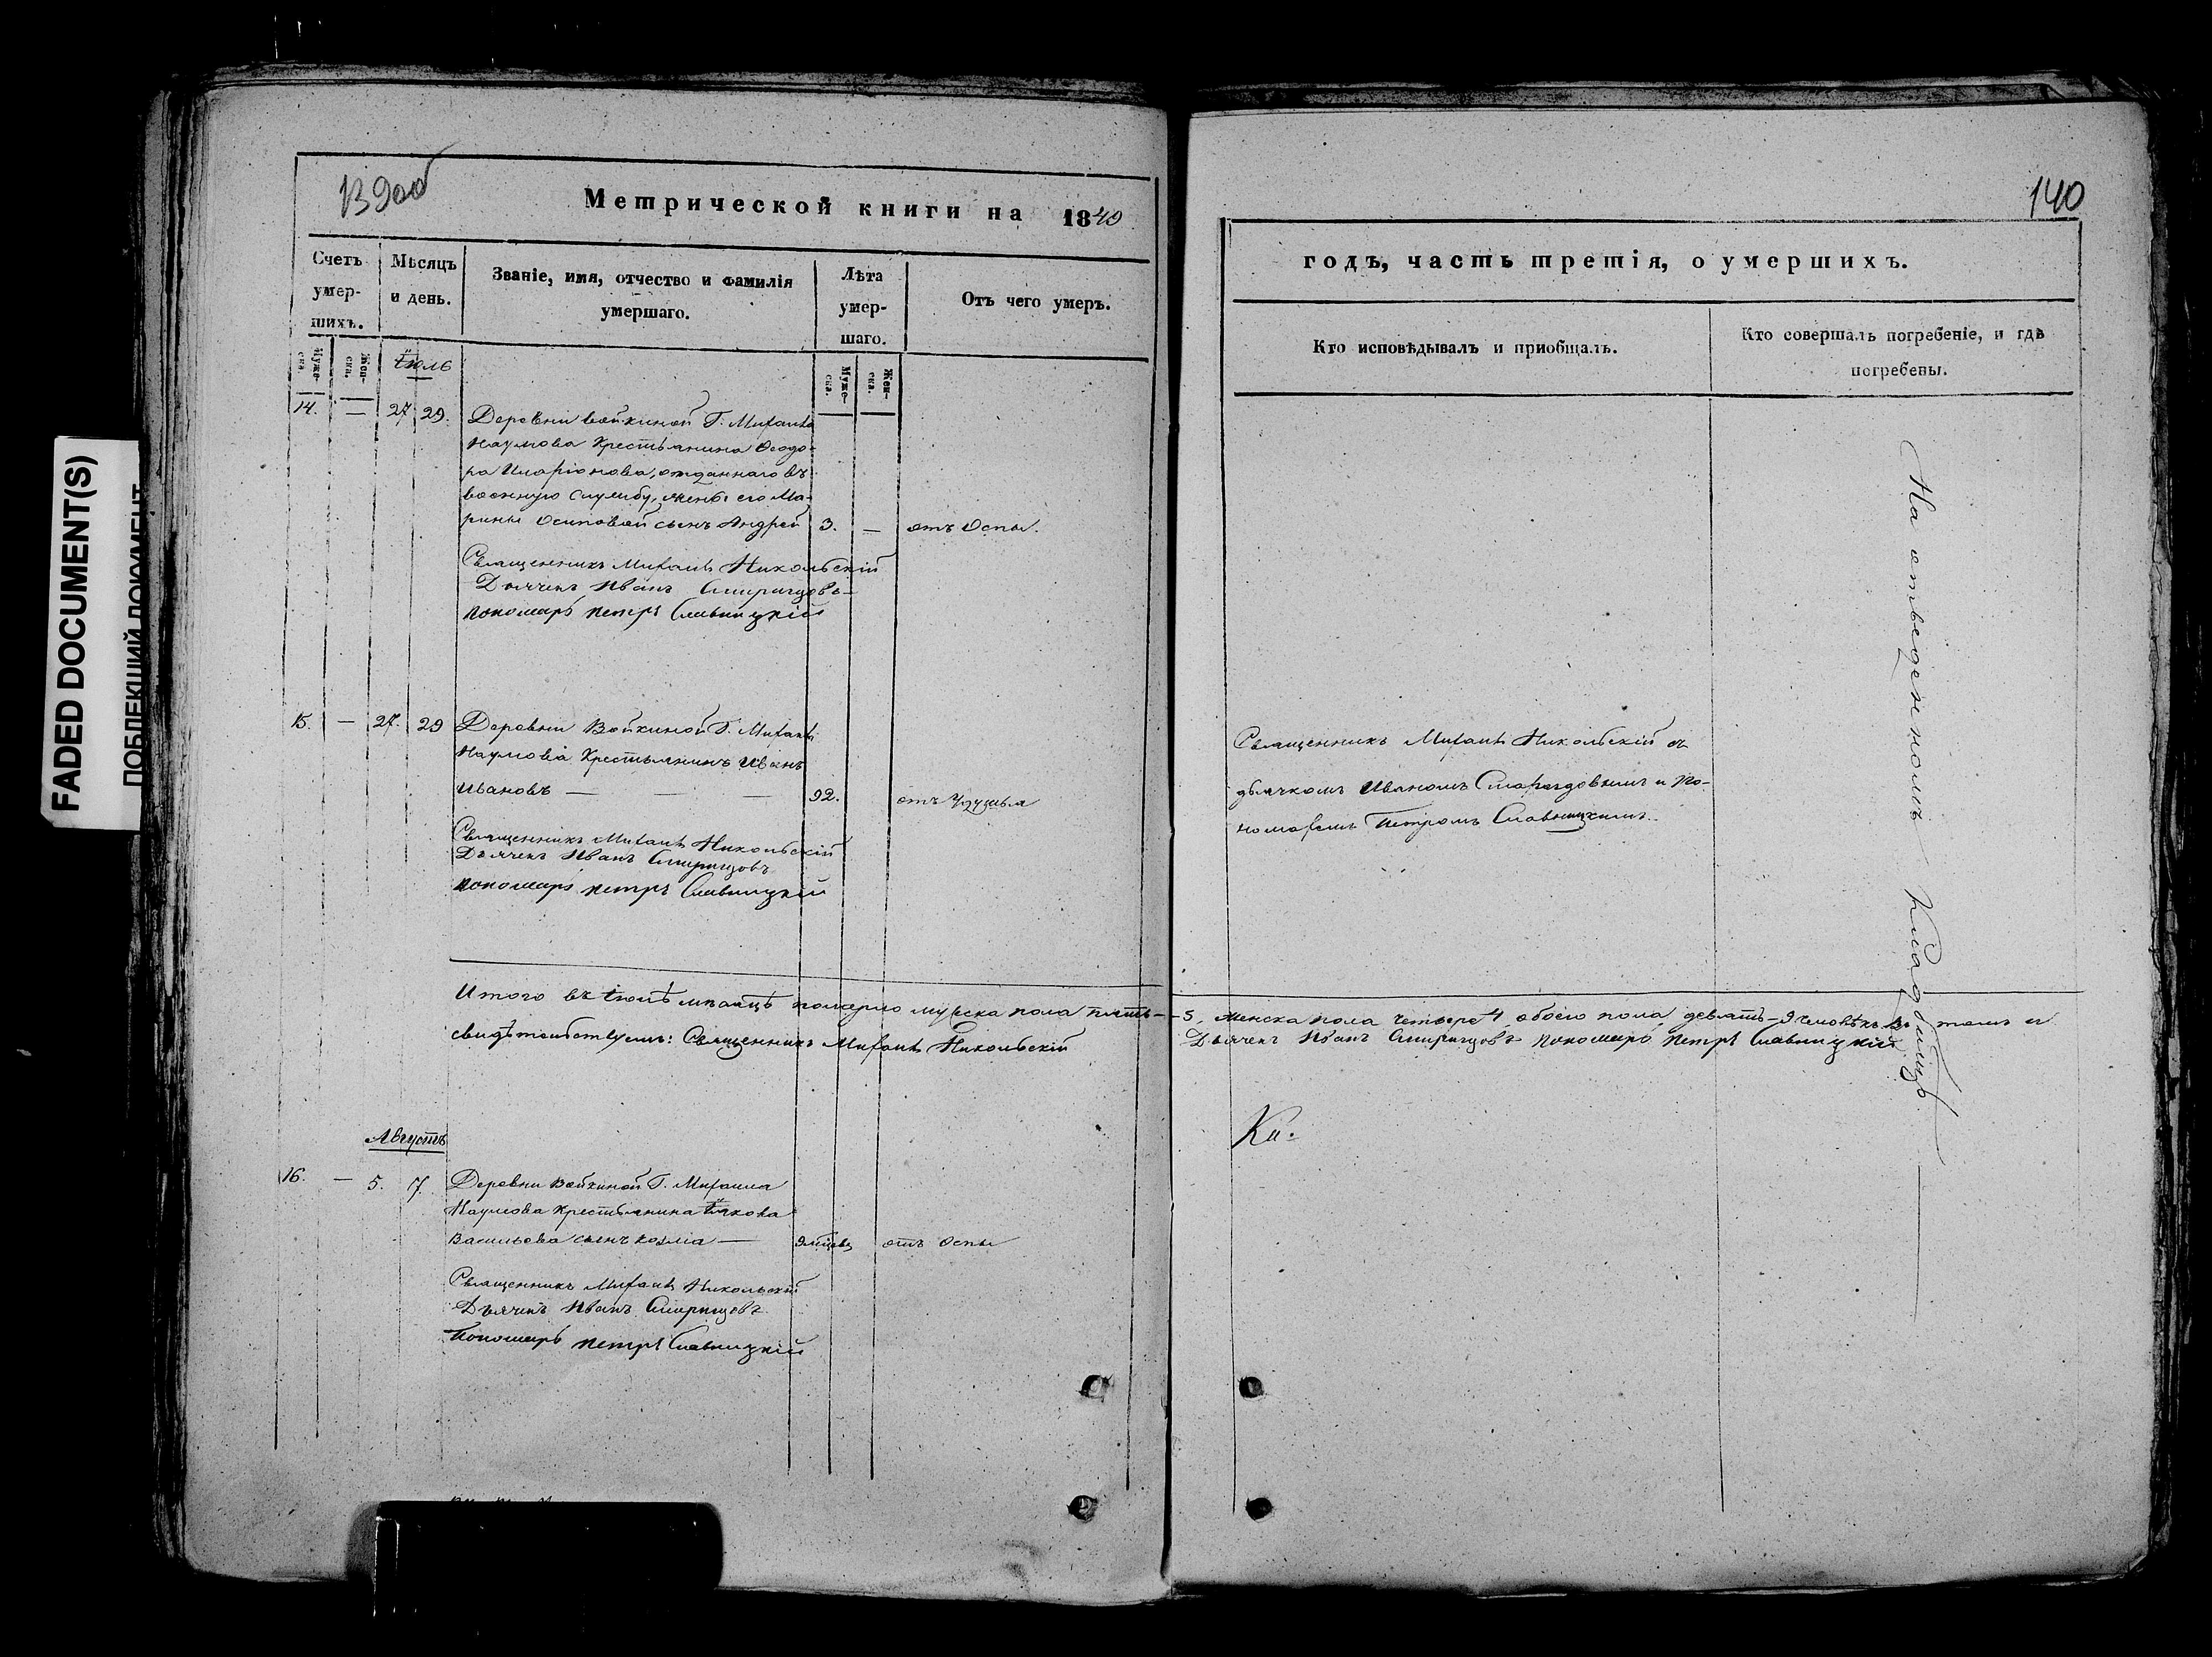 FADED DOCUMENT(S)
ПОБЛЕКШИЙ ДОКУМЕНТ
Метрической книги на 1849
Счетъ умер-шихъ.
Мѣсяцъ и день.
Званіе, имя, отчество и фамилія умершаго.
Лѣта умер-шаго.
Отъ чего умеръ.
Муже-ска.
Жен-ска.
Іюль
Муже-ска.
Жен-ска.
14. — 27 29. Деревни Войкиной Г. Михаила
Наумова Крестьянина Ѳеодо-
ра Иларіонова, отданнаго въ
военную службу, жены его Ма-
рины Осиповой сынъ Андрей 3. — отъ Оспы.
Священникъ Михаилъ Никольскій
Дьячекъ Иванъ Смарагдовъ
пономарь Петръ Славницкій
15. — 27. 29 Деревни Войкиной Г. Михаила
Наумова Крестьянинъ Иванъ
Ивановъ — — — 92. отъ Удушья
Священникъ Михаилъ Никольскій
Дьячекъ Иванъ Смарагдовъ
пономарь Петръ Славницкій
Итого въ Іюлѣ мѣсяцѣ померло мужеска пола пять —
свидѣтельствуемъ: Священникъ Михаилъ Никольскій
Августъ
16. — 5. 7. Деревни Войкиной Г. Михаила
Наумова Крестьянина Іякова
Васильева сынъ Козма — отъ Оспы
Священникъ Михаилъ Никольскій
Дьячекъ Иванъ Смарагдовъ
Пономарь Петръ Славницкій
140
годъ, часть третія, о умершихъ.
Кто исповѣдывалъ и приобщалъ.
Кто совершалъ погребеніе, и гдѣ погребены.
Священникъ Михаилъ Никольскій съ
дьячкомъ Иваномъ Смарагдовымъ и По-
номаремъ Петромъ Славницкимъ.
На отведенномъ Кладбищѣ.
— 5, женска пола четыре 4 обоего пола девять — 9 человѣкъ въ томъ и
Дьячекъ Иванъ Смарагдовъ пономарь Петръ Славницкій